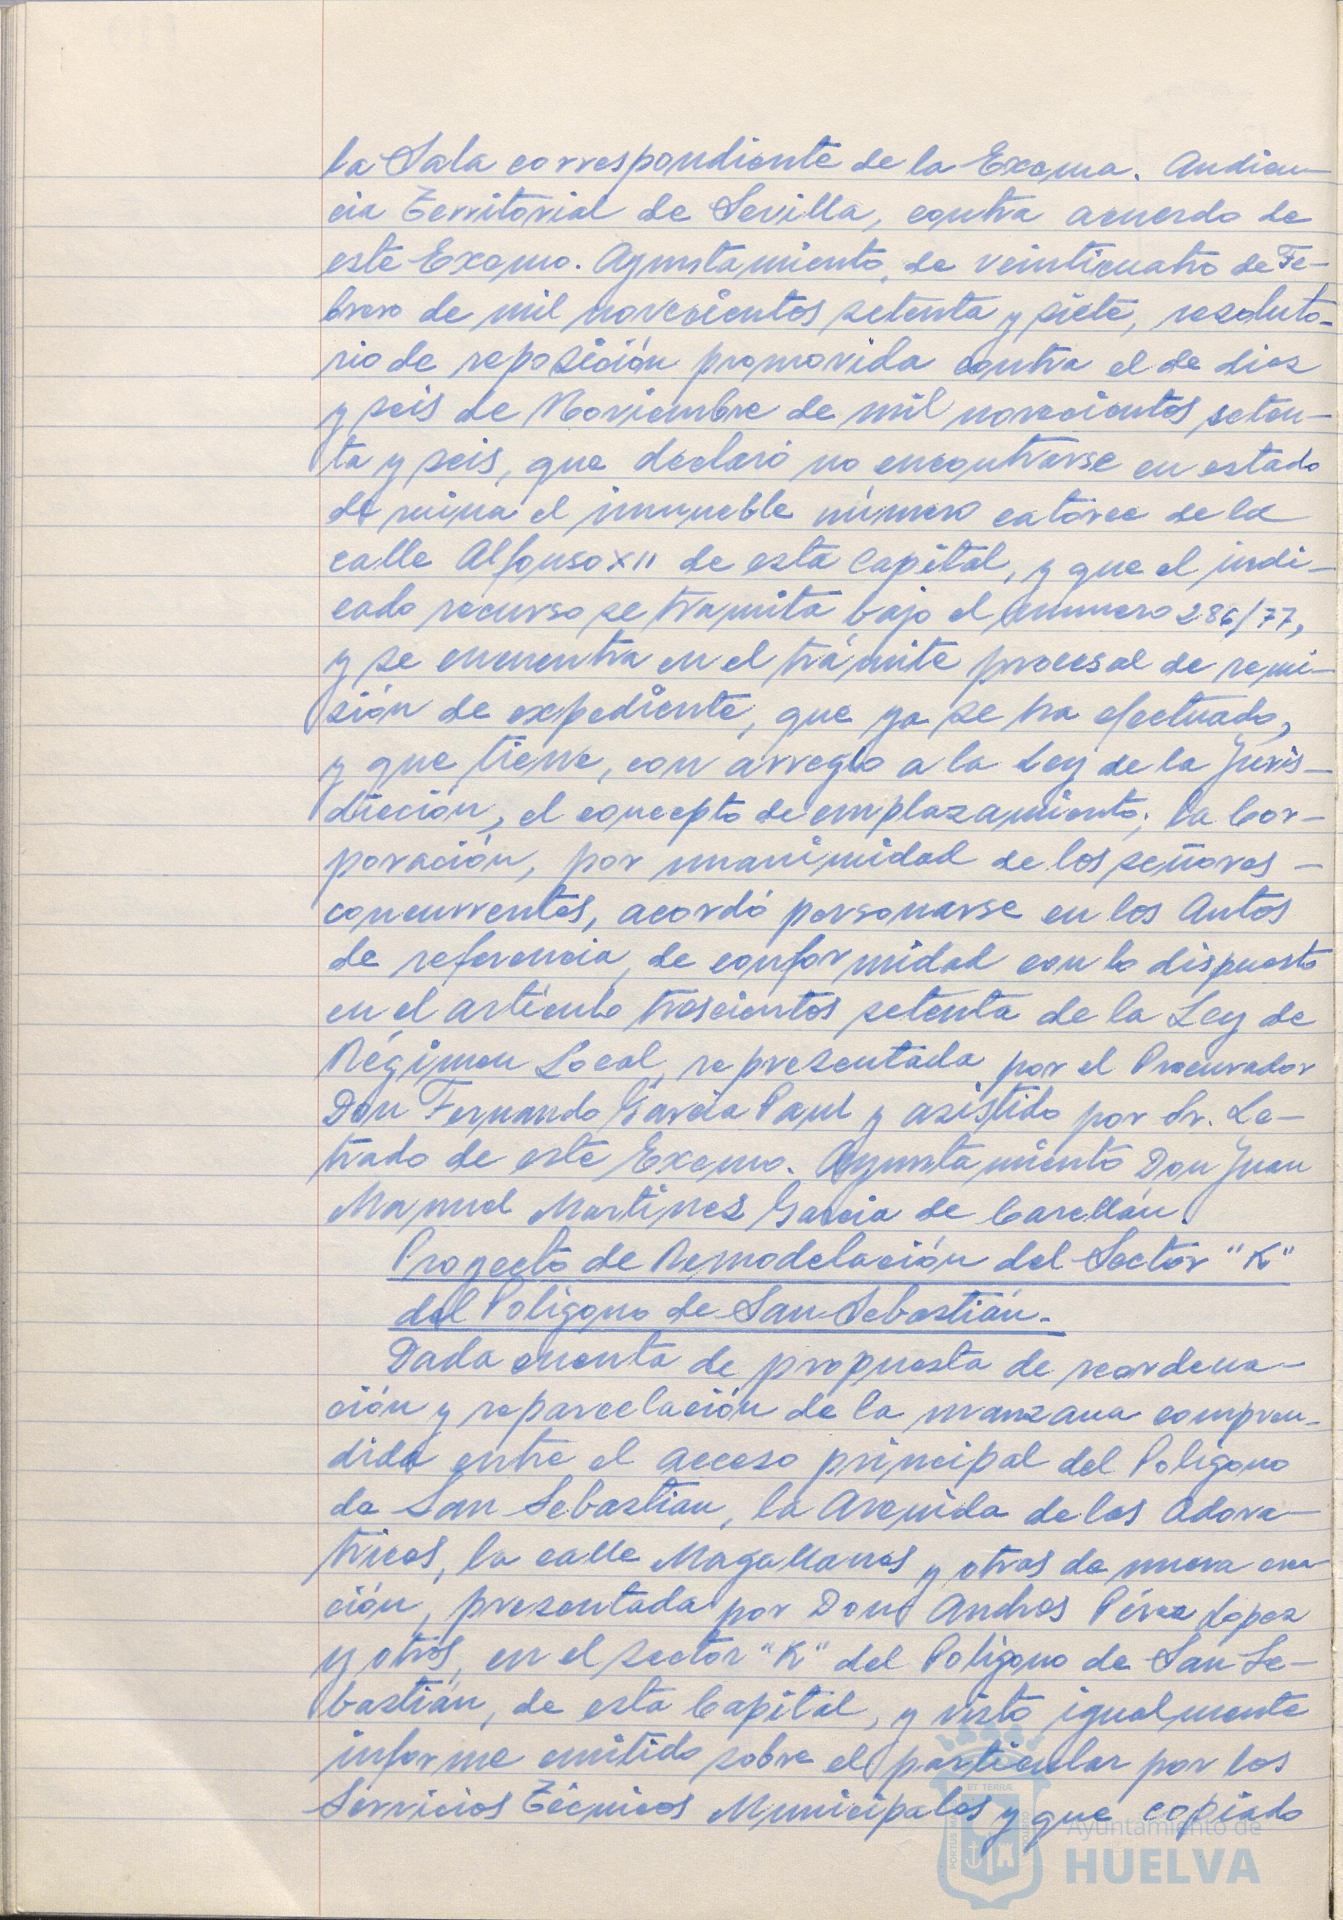 la Sala correspondiente de la Excma. Audien-
cia Territorial de Sevilla, contra acuerdo de
este Excmo. Ayuntamiento, de veinticuatro de Fe-
brero de mil novecientos setenta y siete, resoluto-
rio de reposición promovida contra el de diez
y seis de Noviembre de mil novecientos seten-
ta y seis, que declaró no encontrarse en estado
de ruina el inmueble número catorce de la
calle Alfonso XII de esta Capital, y que el indi-
cado recurso se tramita bajo el número 286/77,
y se encuentra en el trámite procesal de remi-
sión de expediente, que ya se ha efectuado,
y que tiene, con arreglo a la Ley de la Juris-
dicción, el concepto de emplazamiento; la Cor-
poración, por unanimidad de los señores -
concurrentes, acordó personarse en los Autos
de referencia, de conformidad con lo dispuesto
en el artículo trescientos setenta de la Ley de
Régimen Local, representada por el Procurador
Don Fernando García Paul y asistido por Sr. Le-
trado de este Excmo. Ayuntamiento Don Juan
Manuel Martínez García de Carellán.
Proyecto de Remodelación del Sector "K"
del Polígono de San Sebastián.-
Dada cuenta de propuesta de reordena-
ción y reparcelación de la manzana compren-
dida entre el acceso principal del Polígono
de San Sebastian, la Avenida de las Adora-
trices, la calle Magallanes y otras de nueva crea-
ción, presentada por Don Andres Pérez López
y otros, en el sector "K" del Polígono de San Se-
bastián, de esta Capital, y visto igualmente
informe emitido sobre el particular por los
Servicios Técnicos Municipales y que copiado
ET TERRÆ
Ayuntamiento de
HUELVA